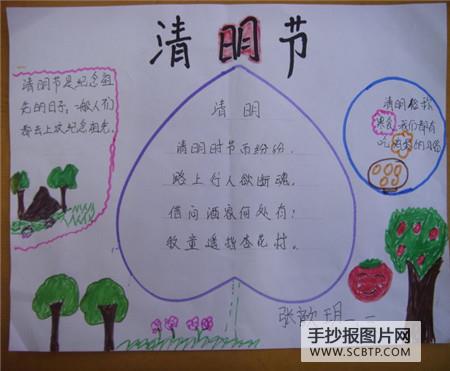 清明节
清明节是纪念祖
先的日子,一般人们
都去上坟纪念祖先。
清明
清明时节雨纷纷,
路上行人欲断魂。
借问酒家何处有?
牧童遥指杏花村。
清明俗称
寒食,我们都有
吃的习俗
张歆玥
手抄报图片网
WWW.SCBTP.COM